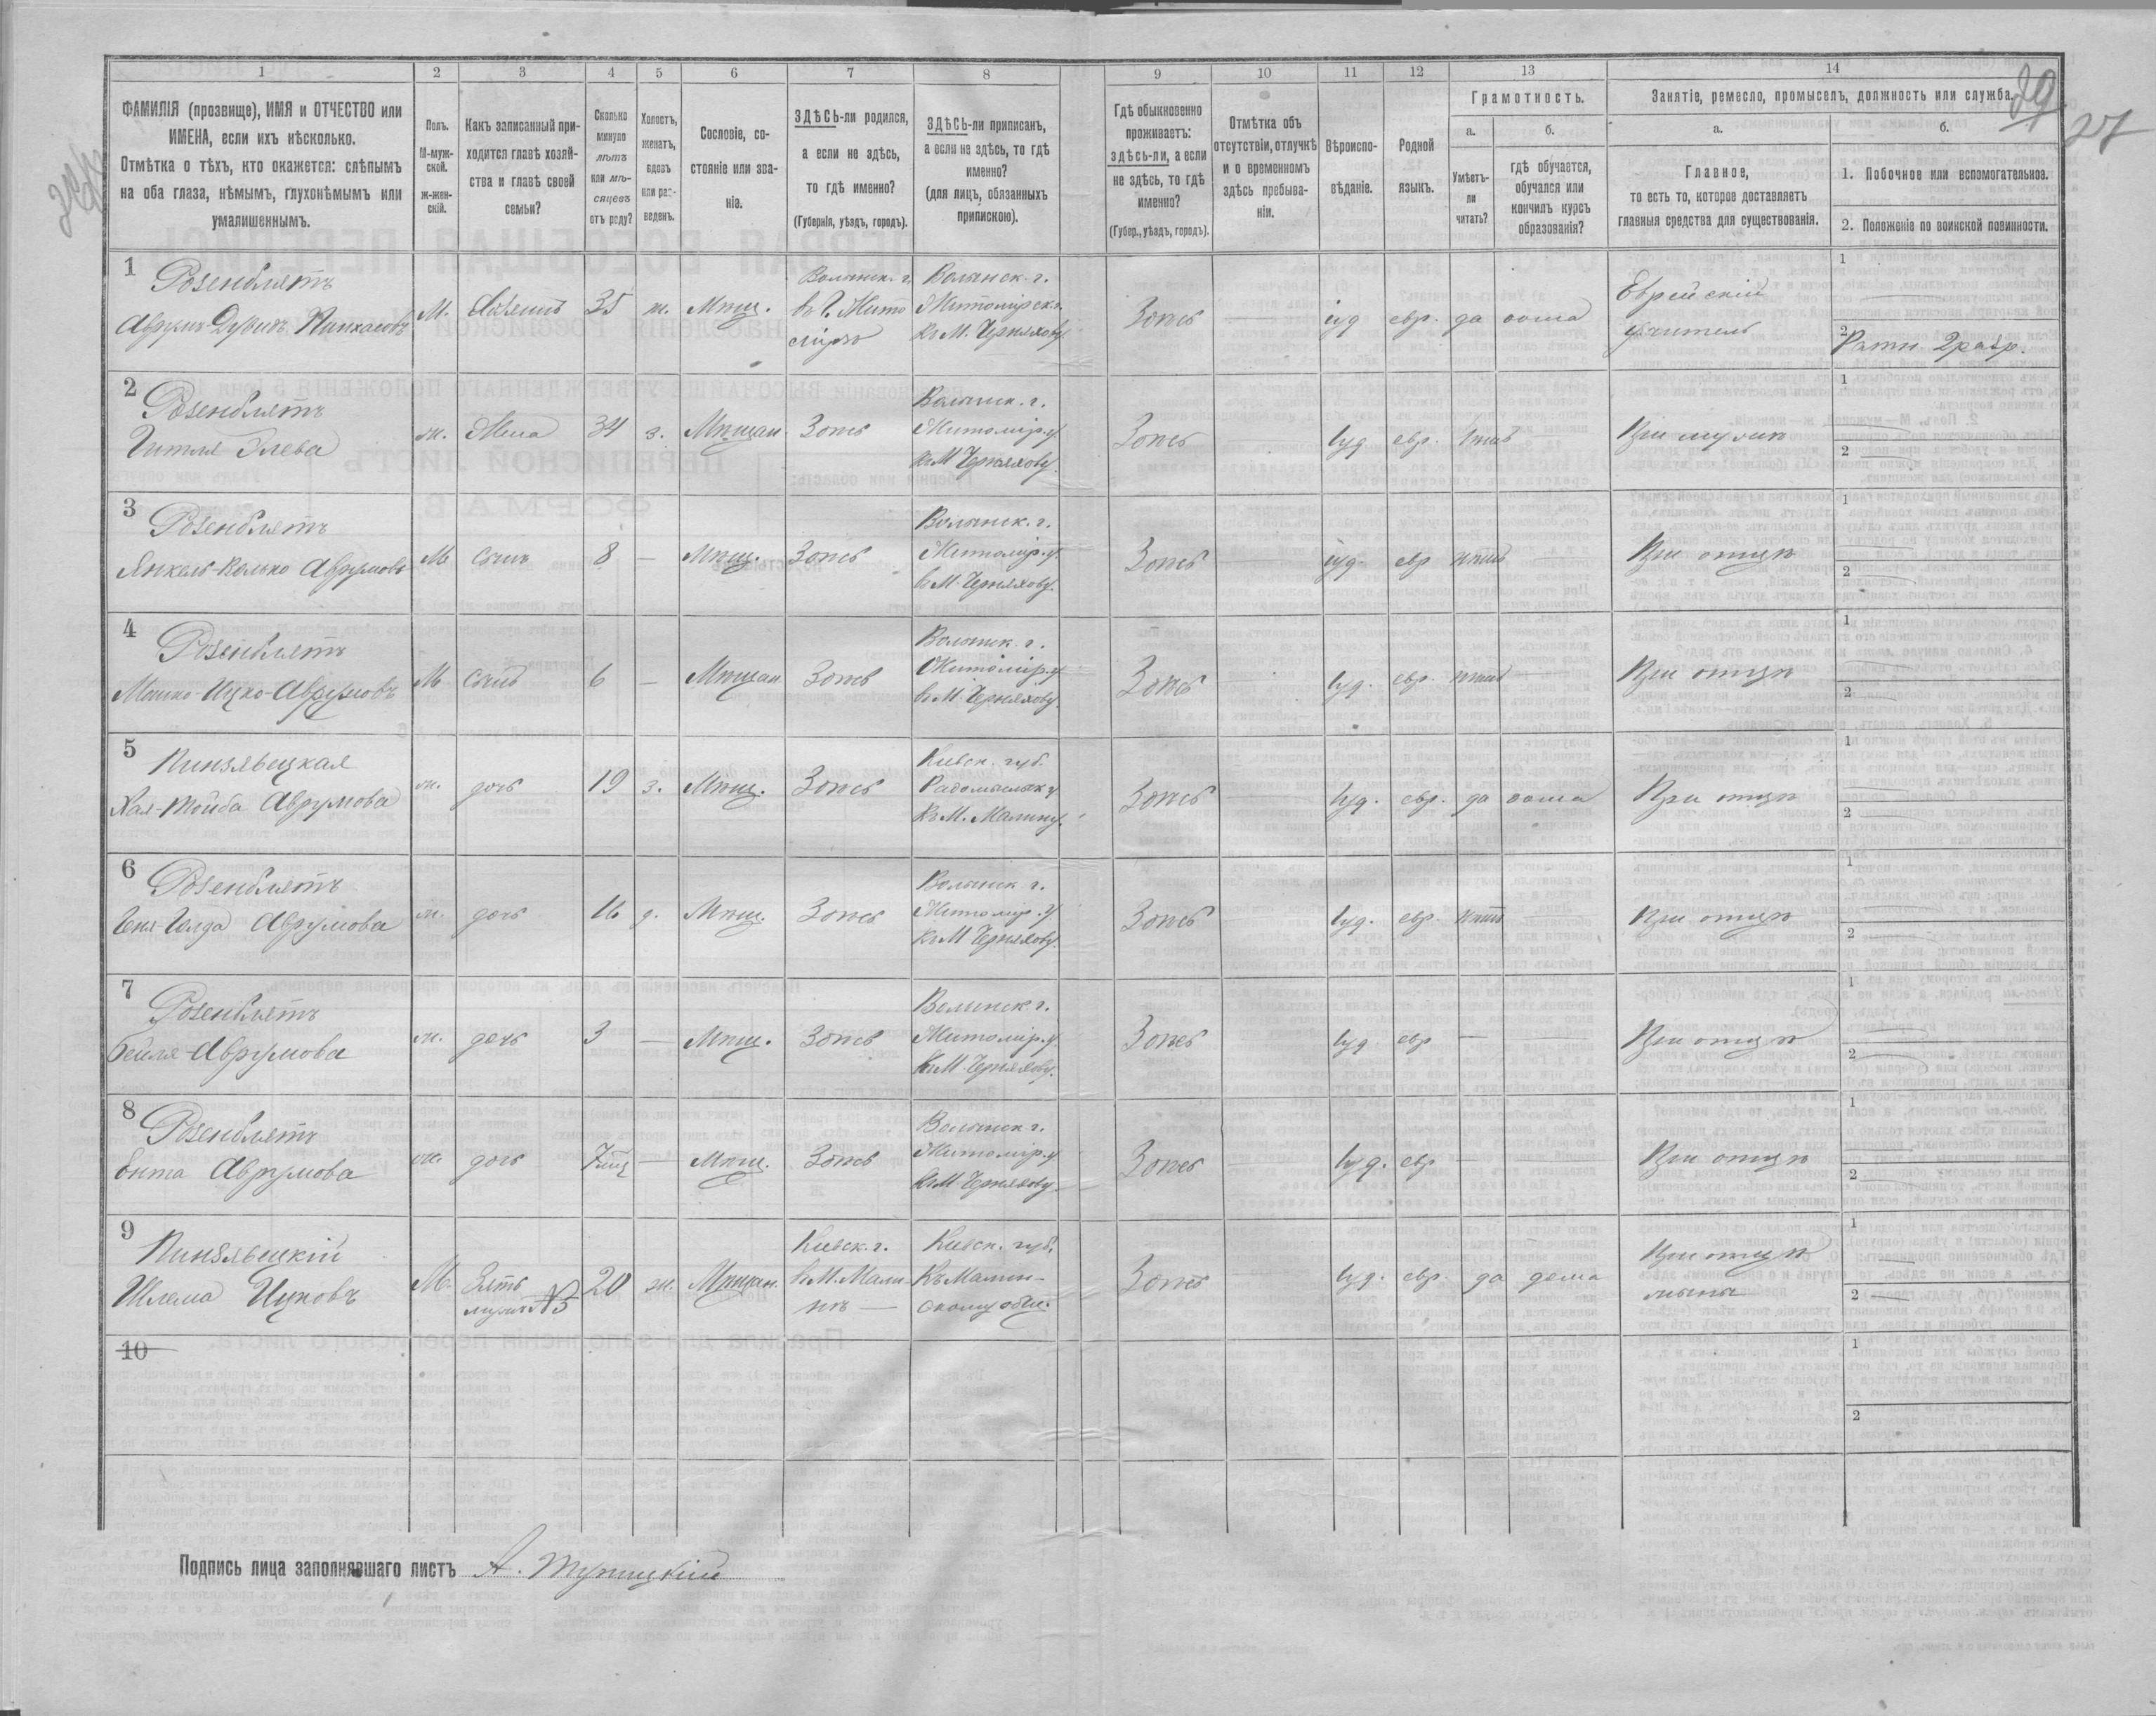 29
27
1 2 3 4 5 6 7 8 9 10 11 12 13 14
ФАМИЛІЯ (прозвище), ИМЯ и ОТЧЕСТВО или ИМЕНА, если ихъ нѣсколько.
Отмѣтка о тѣхъ, кто окажется: слѣпымъ на оба глаза, нѣмымъ, глухонѣмымъ или умалишеннымъ.
Полъ. М-мужской. ж-женскій.
Какъ записанный приходится главѣ хозяйства и главѣ своей семьи?
Сколько минуло лѣтъ или мѣсяцевъ отъ роду?
Холостъ, женатъ, вдовъ или разведенъ.
Сословіе, состояніе или званіе.
ЗДѢСЬ-ли родился, а если не здѣсь, то гдѣ именно?
(Губернія, уѣздъ, городъ).
ЗДѢСЬ-ли приписанъ, а если не здѣсь, то гдѣ именно?
(для лицъ, обязанныхъ припискою).
Гдѣ обыкновенно проживаетъ: здѣсь-ли, а если не здѣсь, то гдѣ именно?
(Губер., уѣздъ, городъ).
Отмѣтка объ отсутствіи, отлучкѣ и о временномъ здѣсь пребываніи.
Вѣроисповѣданіе.
Родной языкъ.
Грамотность.
а. Умѣетъ-ли читать?
б. гдѣ обучается, обучался или кончилъ курсъ образованія?
Занятіе, ремесло, промыселъ, должность или служба.
а. Главное,
то есть то, которое доставляетъ главныя средства для существованія.
б.
1. Побочное или вспомогательное.
2. Положеніе по воинской повинности.
1 Розенблятъ
Аврум-Дувидъ Пинхасовъ М. Хозяинъ 35 ж. Мѣщ. Волынск. г. въ г. Житомірѣ Волынск. г. Житомірск. у. къ М. Черняхову Здѣсь — іуд евр. да дома Еврейскій учитель 1 — 2 Ратн. 2 разр.
2 Розенблятъ
Гитля Элева ж. Жена 34 з. Мѣщан Здѣсь Волынск. г. Житомір. у. къ М Черняхову. Здѣсь — Іуд евр. нѣтъ — При мужѣ 1 — 2 —
3 Розенблятъ
Янкель-Волько Аврумовъ М Сынъ 8 — Мѣщ. Здѣсь Волынск. г. Житомір. у. къ М. Черняхову. Здѣсь — іуд. евр нѣтъ — При отцѣ 1 — 2 —
4 Розенблятъ
Мошко-Ицко-Аврумовъ М Сынъ 6 — Мѣщан Здѣсь Волынск. г. Житомір. у. къ М. Черняхову. Здѣсь — Іуд. евр. нѣтъ — При отцѣ 1 — 2 —
5 Пинзявецкая
Хая-Тойба Аврумова ж. дочь 19 з. Мѣщ. Здѣсь Кіевск. губ. Радомысльск у къ М. Малину. Здѣсь — Іуд. евр. да дома При отцѣ 1 — 2 —
6 Розенблятъ
Геня-Голда Аврумова ж. дочь 16 д. Мѣщ. Здѣсь Волынск г. Житомір. у къ М Черняхову. Здѣсь — Іуд. евр. нѣтъ — При отцѣ 1 — 2 —
7 Розенблятъ
Бейля-Аврумова ж. дочь 3 — Мѣщ. Здѣсь Волынск г. Житомір. у къ М Черняхову. Здѣсь — Іуд евр — — При отцѣ 1 — 2 —
8 Розенблятъ
Ента Аврумова ж. дочь 7 мѣц — Мѣщ. Здѣсь Волынск г. Житомір. у къ М Черняхову. Здѣсь — Іуд. евр — — При отцѣ 1 — 2 —
9 Пинзявецкій
Шлема Ицковъ М. Зять мужъ №5 20 ж. Мѣщан. Кіевск. г. въ М. Малинѣ — Кіевск. губ. Къ Малинскому общ. Здѣсь — Іуд. евр. да дома При отцѣ 1 — 2 —
10 1 2
Подпись лица заполнявшаго листъ